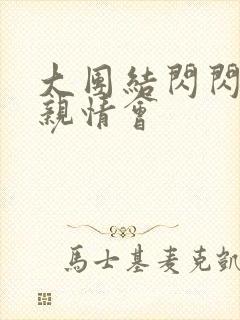 大团結閃閃
親情會
馬士基麦克凱